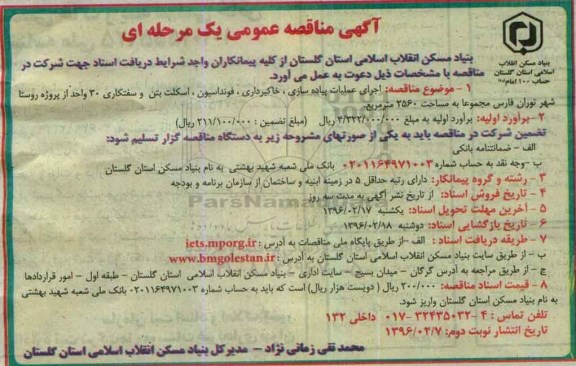 آگهی مناقصه عمومی یک مرحله ای
بنیاد مسکن انقلاب اسلامی استان گلستان
حساب ۱۰۰ امام
بنیاد مسکن انقلاب اسلامی استان گلستان از کلیه پیمانکاران واجد شرایط دریافت اسناد جهت شرکت در
مناقصه با مشخصات ذیل دعوت به عمل می آورد.
۱- موضوع مناقصه: اجرای عملیات پیاده سازی ، خاکبرداری ، فونداسیون ، اسکلت بتن و سفتکاری ۳۰ واحد از پروژه روستا
شهر توران فارس مجموعا به مساحت ۲۵۶۰ مترمربع.
۲-برآورد اولیه: برآورد اولیه به مبلغ ۴/۲۲۲/۰۰۰/۰۰۰ ریال (مبلغ تضمین : ۲۱۱/۱۰۰/۰۰۰ ریال)
تضمین شرکت در مناقصه باید به یکی از صورتهای مشروحه زیر به دستگاه مناقصه گزار تسلیم شود:
الف - ضمانتنامه بانکی
ب -وجه نقد به حساب شماره ۰۲۰۱۱۶۴۹۷۱۰۰۳ بانک ملی شعبه شهید بهشتی به نام بنیاد مسکن استان گلستان
۳ - رشته و گروه پیمانکار: دارای رتبه حداقل ۵ در زمینه ابنیه و ساختمان از سازمان برنامه و بودجه
۴ - تاریخ فروش اسناد: از تاریخ نشر آگهی به مدت سه روز
۵ - آخرین مهلت تحویل اسناد: یکشنبه ۱۳۹۶/۰۲/۱۷
۶ - تاریخ بازگشایی اسناد: دوشنبه ۱۳۹۶/۰۲/۱۸
۷ - طریقه دریافت اسناد : الف -از طریق پایگاه ملی مناقصات به آدرس : iets.mporg.ir
ب - از طریق سایت بنیاد مسکن انقلاب اسلامی استان گلستان به آدرس : www.bmgolestan.ir
ج - از طریق مراجعه به آدرس گرگان - میدان بسیج - سایت اداری - بنیاد مسکن انقلاب اسلامی استان گلستان - طبقه اول - امور قراردادها
۸ - قیمت اسناد مناقصه: ۲۰۰/۰۰۰ ریال (دویست هزار ریال) است که باید به حساب شماره ۰۲۰۱۱۶۴۹۷۱۰۰۳ بانک ملی شعبه شهید بهشتی
به نام بنیاد مسکن استان گلستان واریز شود.
تلفن تماس : ۴ -۳۲۴۳۵۰۳۲ -۰۱۷ داخلی ۱۳۲
تاریخ انتشار نوبت دوم: ۱۳۹۶/۰۲/۷
محمد تقی زمانی نژاد - مدیرکل بنیاد مسکن انقلاب اسلامی استان گلستان